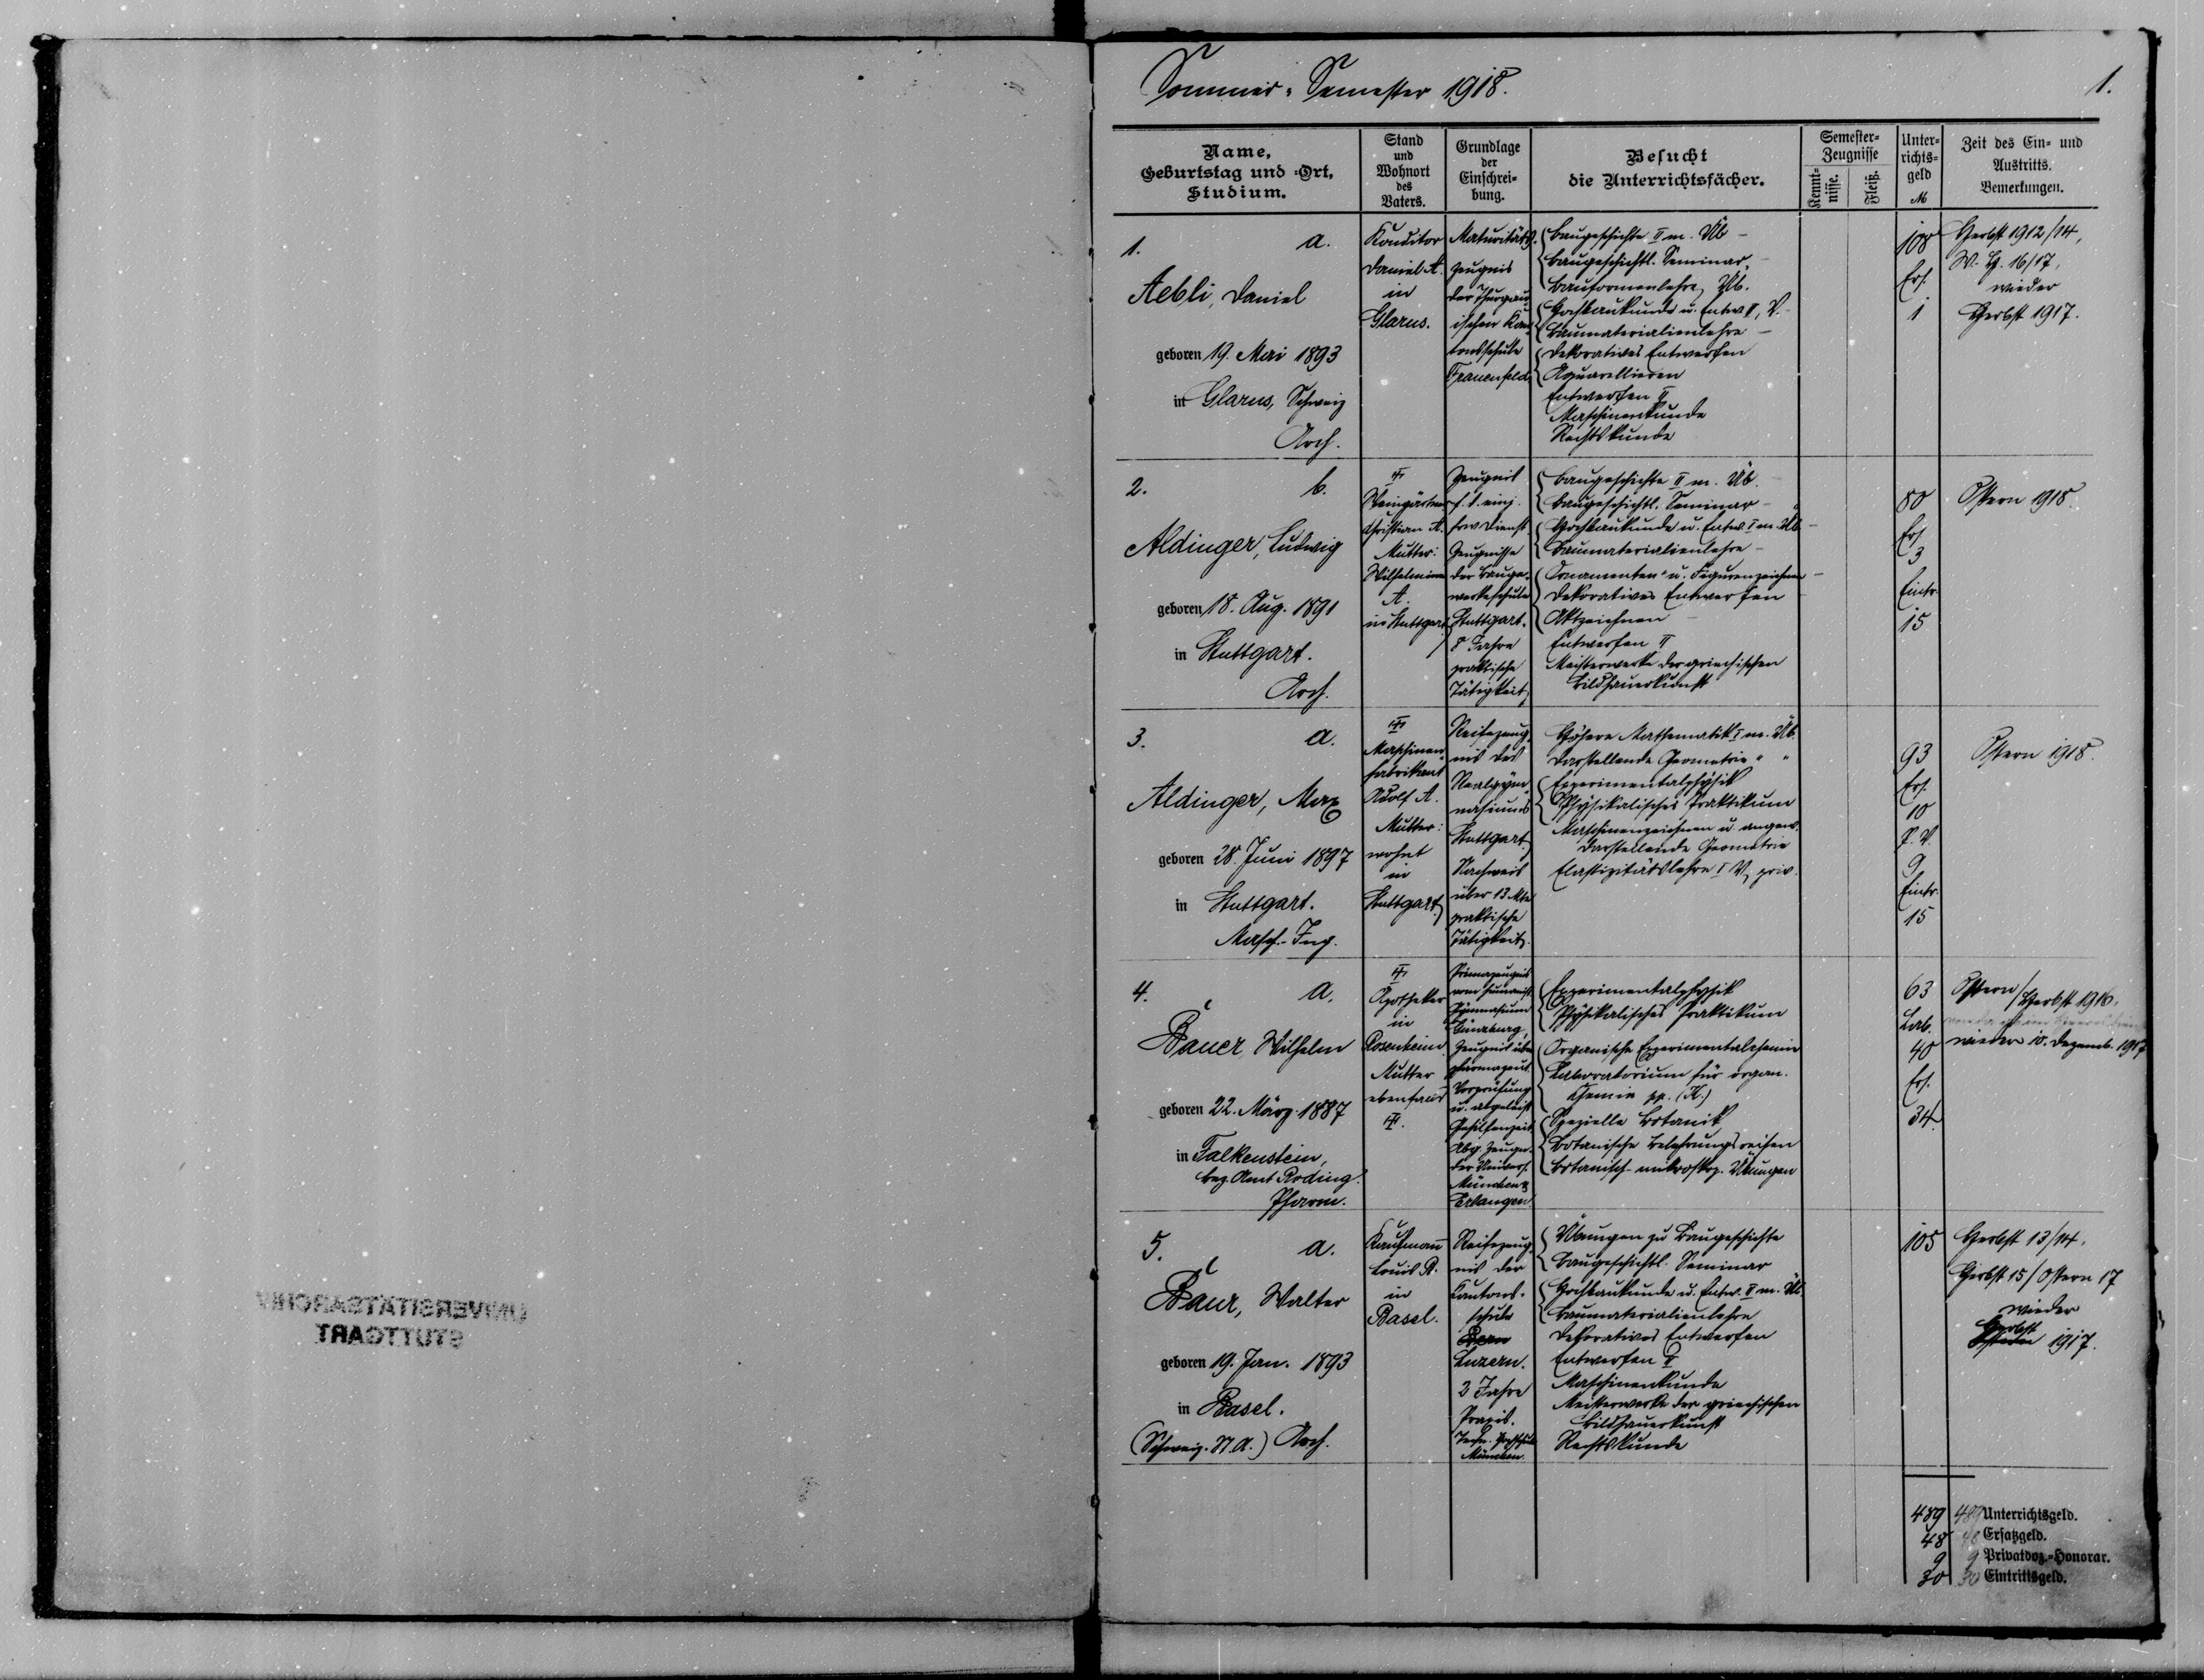 Sommer-Semester 1918.
1.
Name, Geburtstag und -Ort, Studium.
Stand und Wohnort des Vaters.
Grundlage der Einschrei-bung.
Besucht die Unterrichtsfächer.
Semester-Zeugnisse
Kennt-nisse.
Fleiß.
Unter-richts-geld M
Zeit des Ein- und Austritts. Bemerkungen.
1. a.
Aebli, Daniel
geboren 19. Mai 1893
in Glarus, Schweiz
Arch.
Konditor
Daniel A.
in
Glarus.
Maturitäts-
zeugnis
der Thurgau-
ischen Kan-
tonsschule
Frauenfeld.
Baugeschichte II m. Üb
Baugeschichtl. Seminar
Bauformenlehre, Üb.
Hochbaukunde u. Entw. II, V.
Baumaterialienlehre
Dekoratives Entwerfen
Aquarellieren
Entwerfen II
Maschinenkunde
Rechtskunde
108
Ers.
1
Herbst 1912/14,
W. H. 16/17,
wieder
Herbst 1917.
2. b.
Aldinger, Ludwig
geboren 18. Aug. 1891
in Stuttgart.
Arch.
Weingärtner
Christian A.
Mutter:
Wilhelmine
A.
in Stuttgart
Zeugnis
f. d. einj.
frw Dienst
Zeugnisse
der Bauge-
werkeschule
Stuttgart.
8 Jahre
praktische
Tätigkeit
Baugeschichte II m. Üb.
Baugeschichtl. Seminar
Hochbaukunde u. Entw. I m. Üb
Baumaterialienlehre
Ornamenten- u. Figurenzeichnen
Dekoratives Entwerfen
Aktzeichnen
Entwerfen II
Meisterwerke der griechischen
Bildhauerkunst
80
Ers.
3
Eintr.
15
Ostern 1918.
3. a.
Aldinger, Max
geboren 28. Juni 1897
in Stuttgart.
Masch.-Ing.
Maschinen-
fabrikant
Adolf A.
Mutter:
wohnt
in
Stuttgart
Reifezeug-
nis des
Realgym-
nasiums
Stuttgart.
Nachweis
über 13 Mte
praktische
Tätigkeit.
Höhere Mathematik I m. Üb.
Darstellende Geometrie " "
Experimentalphysik
Physikalisches Praktikum
Maschinenzeichnen u. angew.
Darstellende Geometrie
Elastizitätslehre I V, priv.
93
Ers.
10
P. V.
9
Eintr.
15
Ostern 1918.
4. a.
Bauer, Wilhelm
geboren 22. März 1887
in Falkenstein,
Bez. Amt Roding.
Pharm.
Apotheker
in
Rosenheim
Mutter
ebenfalls
Primazeugnis
vom humanist.
Gymnasium
Günzburg,
Zeugnis über
pharmazeut.
Vorprüfung
u. abgeleist.
Gehilfenzeit
Abg. Zeugn.
der Univers.
München &
Erlangen.
Experimentalphysik
Physikalisches Praktikum
Organische Experimentalchemie
Laboratorium für organ.
Chemie pp. (K.)
Spezielle Botanik
Botanische Belehrungsreisen
Botanisch-mikroskop. Übungen
63
Lab.
40
Ers.
34
Ostern/Herbst 1916.
wieder 10. Dezemb. 1917
5. a.
Baur, Walter
geboren 19. Jan. 1893
in Basel.
(Schweiz. St. A.) Arch.
Kaufmann
Louis B.
in
Basel.
Reifezeug-
nis der
Kantons-
schule
Bern
Luzern.
2 Jahre
Praxis.
Techn. Hochschule
München.
Übungen zu Baugeschichte
Baugeschichtl. Seminar
Hochbaukunde u. Entw. II m. Üb
Baumaterialienlehre
Dekoratives Entwerfen
Entwerfen II
Maschinenkunde
Meisterwerke der griechischen
Bildhauerkunst
Rechtskunde
105
Herbst 13/14.
Herbst 15/Ostern 17
wieder
Herbst
Ostern 1917.
489 489 Unterrichtsgeld.
48 48 Ersatzgeld.
9 9 Privatdoz.-Honorar.
30 30 Eintrittsgeld.
UNIVERSITÄTSARCHIV
STUTTGART